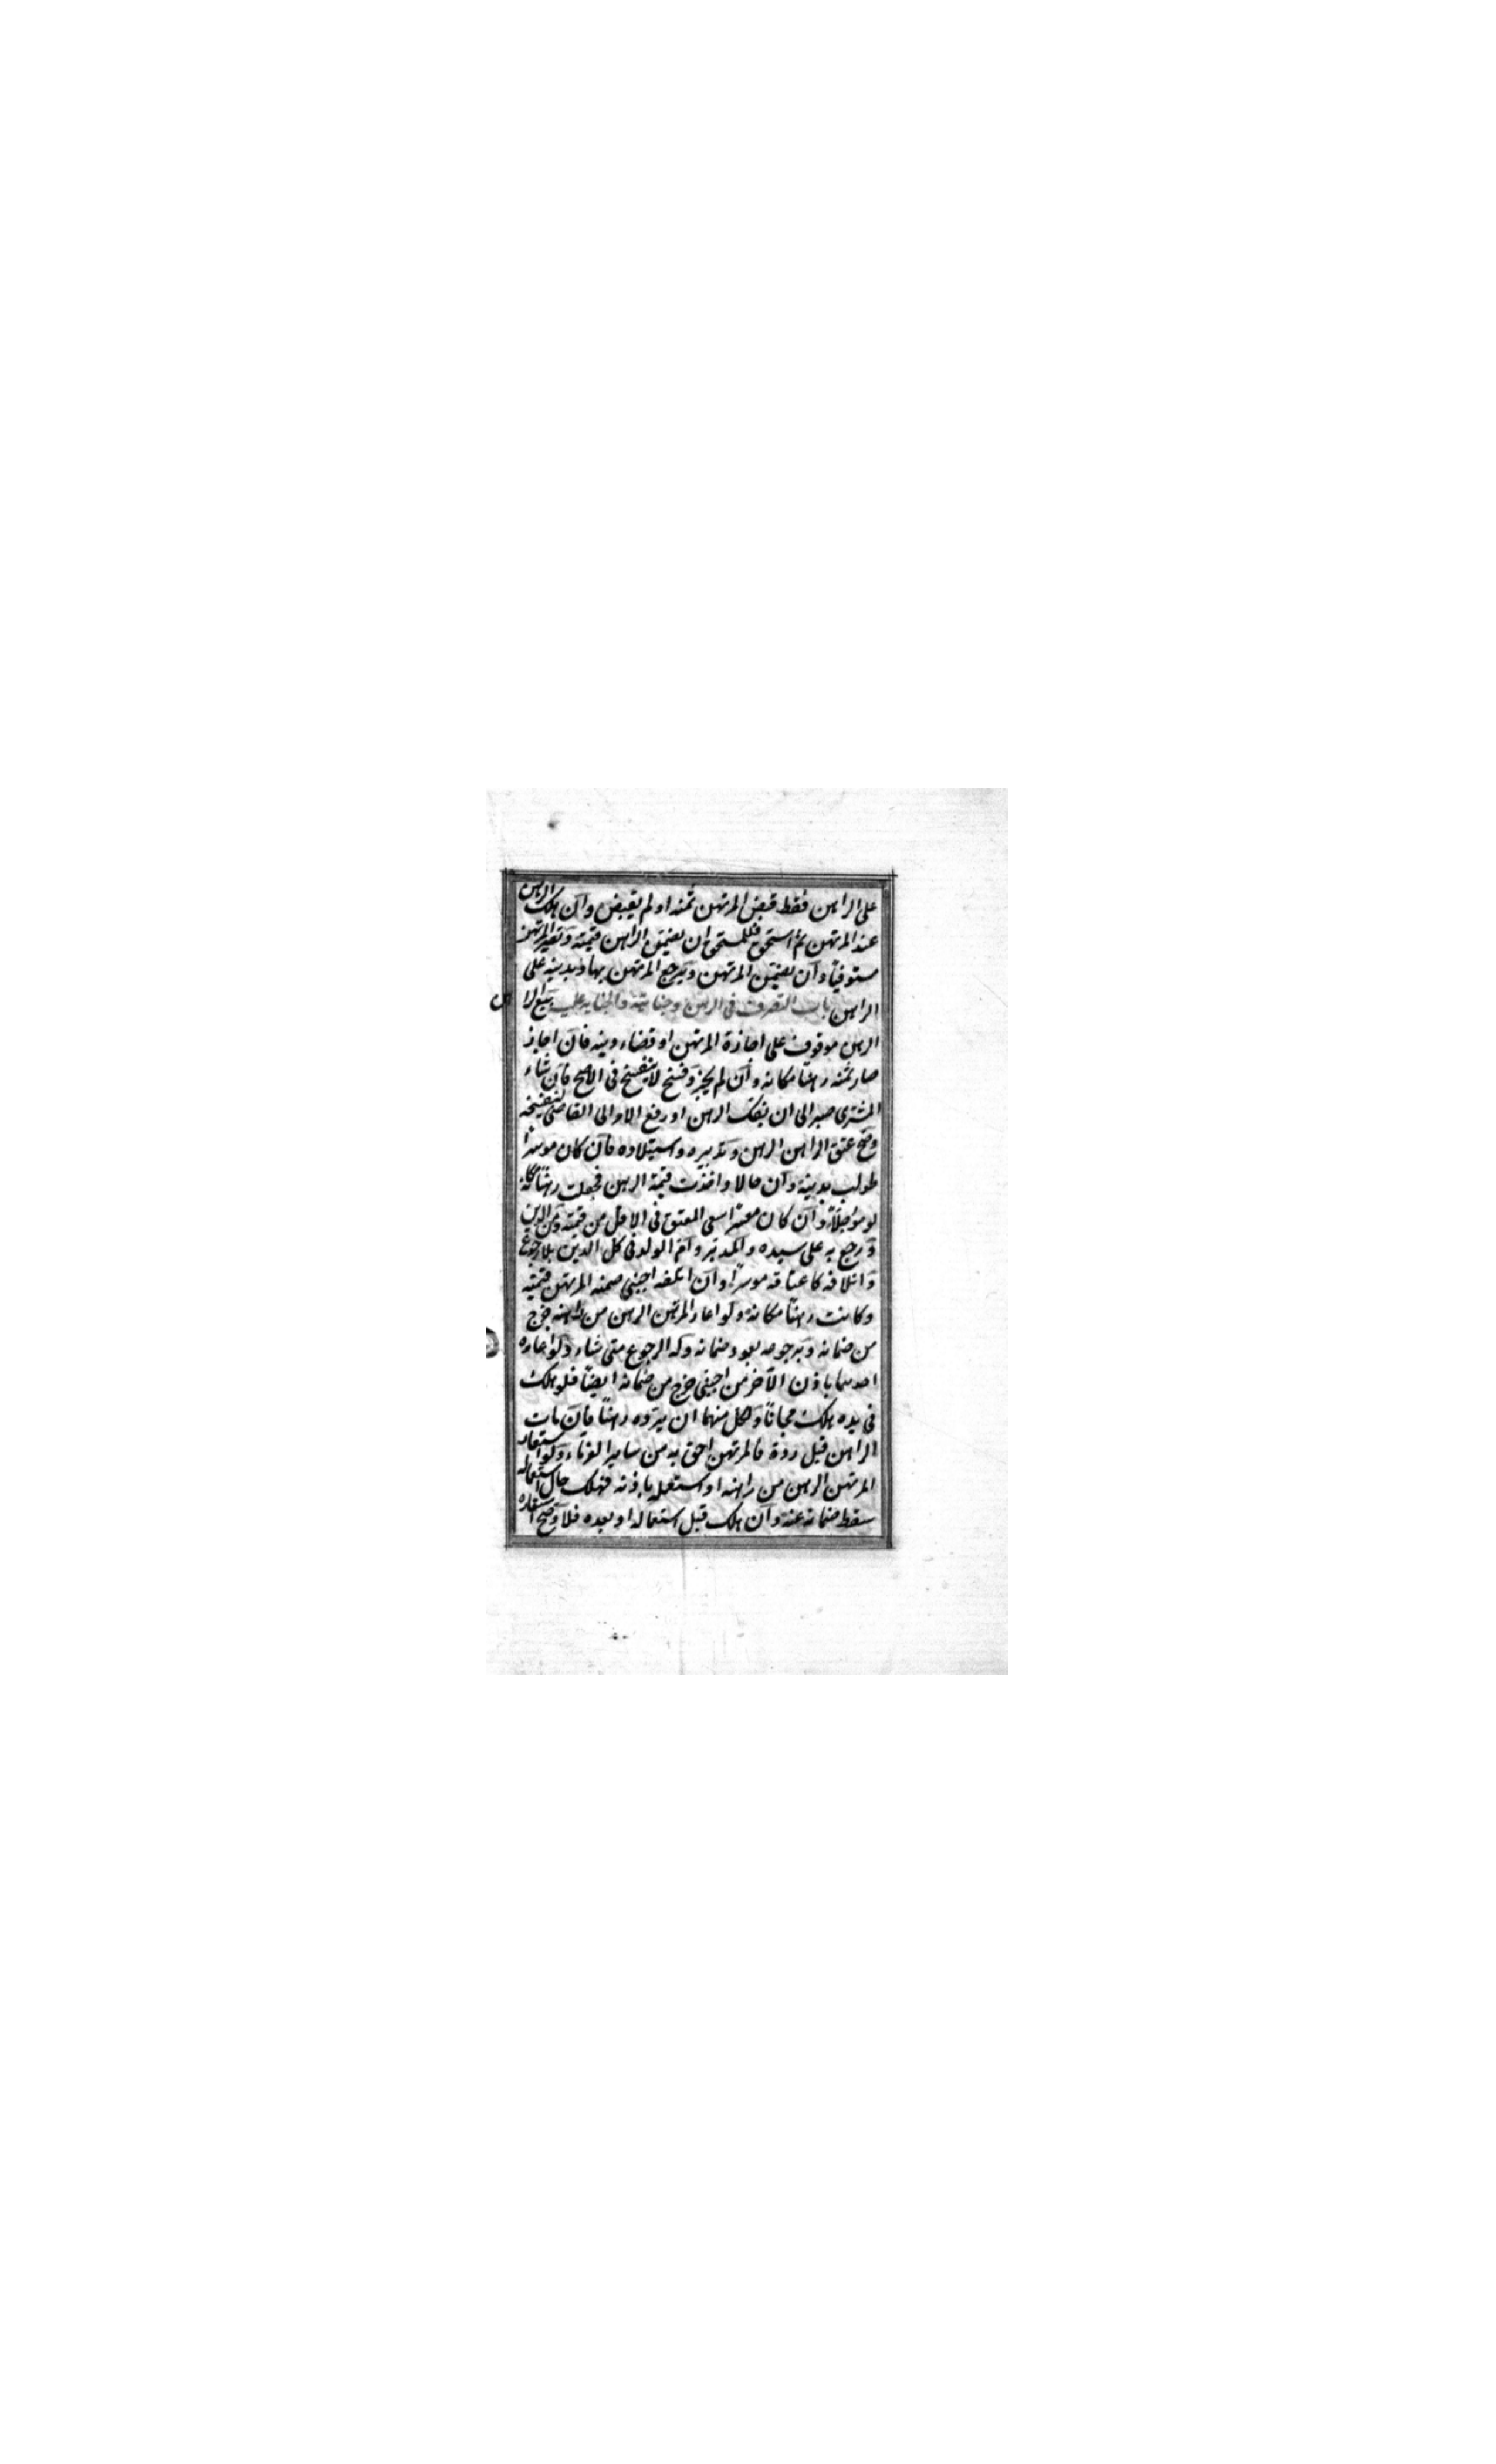 على الراهن فقط قبض المرتهن ثمنه او لم يقبض وان هلك الرهن
عند المرتهن ثم استحق فللمستحق ان يضمن الراهن قيمته ويصير المرتهن
مستوفيا وان يضمن المرتهن ويرجع المرتهن بها وبدينه على
الراهن باب التصرف في الرهن وجنايته والجناية عليه بيع الراهن
الرهن موقوف على اجازة المرتهن او قضاء دينه فان اجاز
صار ثمنه رهنا مكانه وان لم يجز وفسخ لا ينفسخ في الاصح فان شاء
المشترى صبر الى ان يفك الرهن او رفع الامر الى القاضي ليفسخه
وصح عتق الراهن الرهن وتدبيره واستيلاده فان كان موسرا
طولب بدينه وان حالا واخذت قيمة الرهن فجعلت رهنا مكانه
لو مؤجلا وان كان معسرا سعى المعتق في الاقل من قيمته ومن الدين
ورجع به على سيده والمدبر وام الولد في كل الدين بلا رجوع
واتلافه كاعتاقه موسرا وان اتلفه اجنبي ضمنه المرتهن قيمته
وكانت رهنا مكانه ولو اعار المرتهن الرهن من راهنه خرج
من ضمانه وبرجوعه يعود ضمانه وله الرجوع متى شاء ولو اعاره
احدهما باذن الآخر من اجنبي خرج من ضمانه ايضا فلو هلك
في يده هلك مجانا ولكل منهما ان يرده رهنا فان مات
الراهن قبل رده فالمرتهن احق به من ساير الغرماء ولو استعار
المرتهن الرهن من راهنه او استعمله باذنه فهلك حال استعماله
سقط ضمانه عنه وان هلك قبل استعماله او بعده فلا وصح استعارة